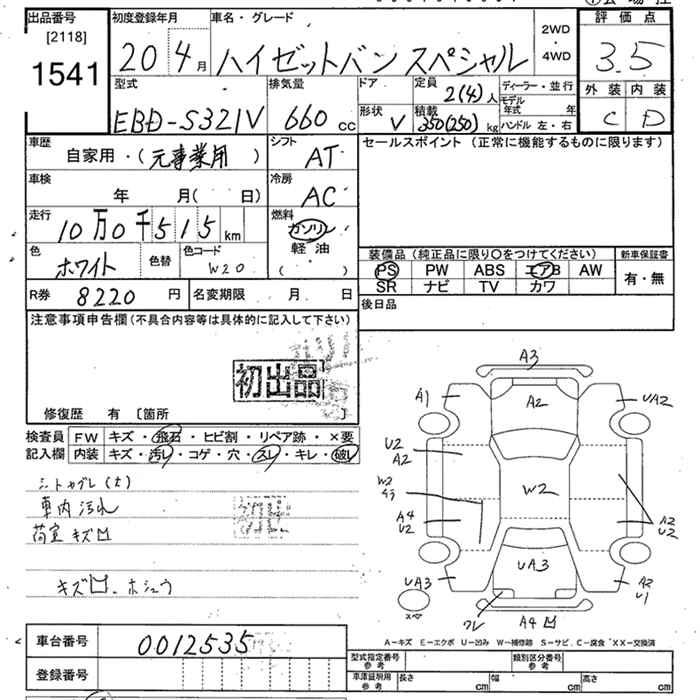 出品番号
[2118]
1541
初度登録年月
20 4月
車名・グレード
ハイゼットバン スペシャル
2WD
・
4WD
評価点
3.5
外装 内装
C D
型式
EBD-S321V
排気量
660 cc
ドア
形状
V
定員
2(4)人
積載
350(250)kg
ディーラー・並行
モデル
年式 年
ハンドル 左・右
車歴
自家用・(元事業用)
シフト
AT
セールスポイント(正常に機能するものに限ります)
車検
年 月(日)
冷房
AC
走行
10万0千515km
燃料
ガソリン
軽油
( )
色
ホワイト
色替
色コード
W20
装備品(純正品に限り〇をつけてください)
新車保証書
PS PW ABS エアB AW
SR ナビ TV カワ
有・無
R券 8220円
名変期限 月 日
後日品
注意事項申告欄(不具合内容等は具体的に記入して下さい)
初出品
修復歴 有〔箇所 〕
検査員
記入欄
FW キズ・飛石・ヒビ割・リペア跡・×要
内装 キズ・汚れ・コゲ・穴・スレ・キレ・破レ
車内汚れ
荷室キズ凹
キズ凹、ホシュウ
A3
A1
A2
UA2
U2
A2
W2
W2
A4
U2
A2
U2
UA3
UA3
A2
U1
ワレ
A4凹
A-キズ E-エクボ U-凹み W-補修跡 S-サビ、C-腐食 XX-交換済
車台番号 0012535
登録番号
型式指定番号
参考
類別区分番号
参考
車庫証明用
参考
長さ cm
幅 cm
高さ cm